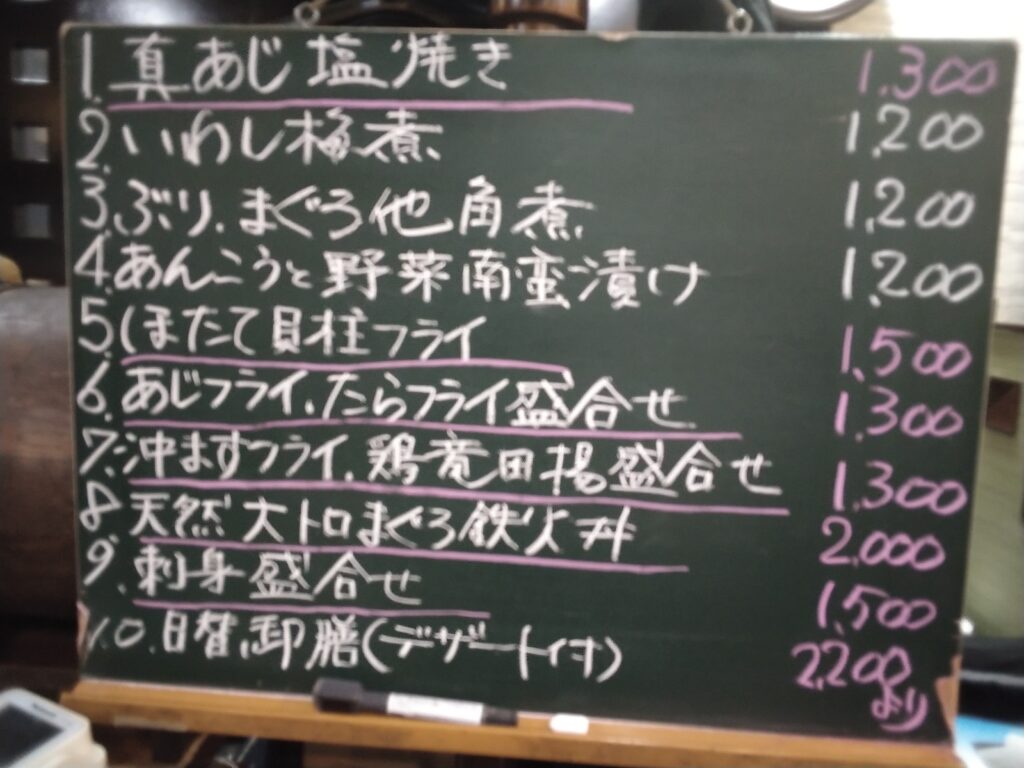 1. 真あじ塩焼き 1,300
2. いわし梅煮 1,200
3. ぶり、まぐろ他角煮 1,200
4. あんこうと野菜南蛮漬け 1,200
5. ほたて貝柱フライ 1,500
6. あじフライ、たらフライ盛合せ 1,300
7. 沖ますフライ、鶏竜田揚盛合せ 1,300
8 天然大トロまぐろ鉄火丼 2,000
9. 刺身盛合せ 1,500
10. 日替御膳(デザート付) 2,200より